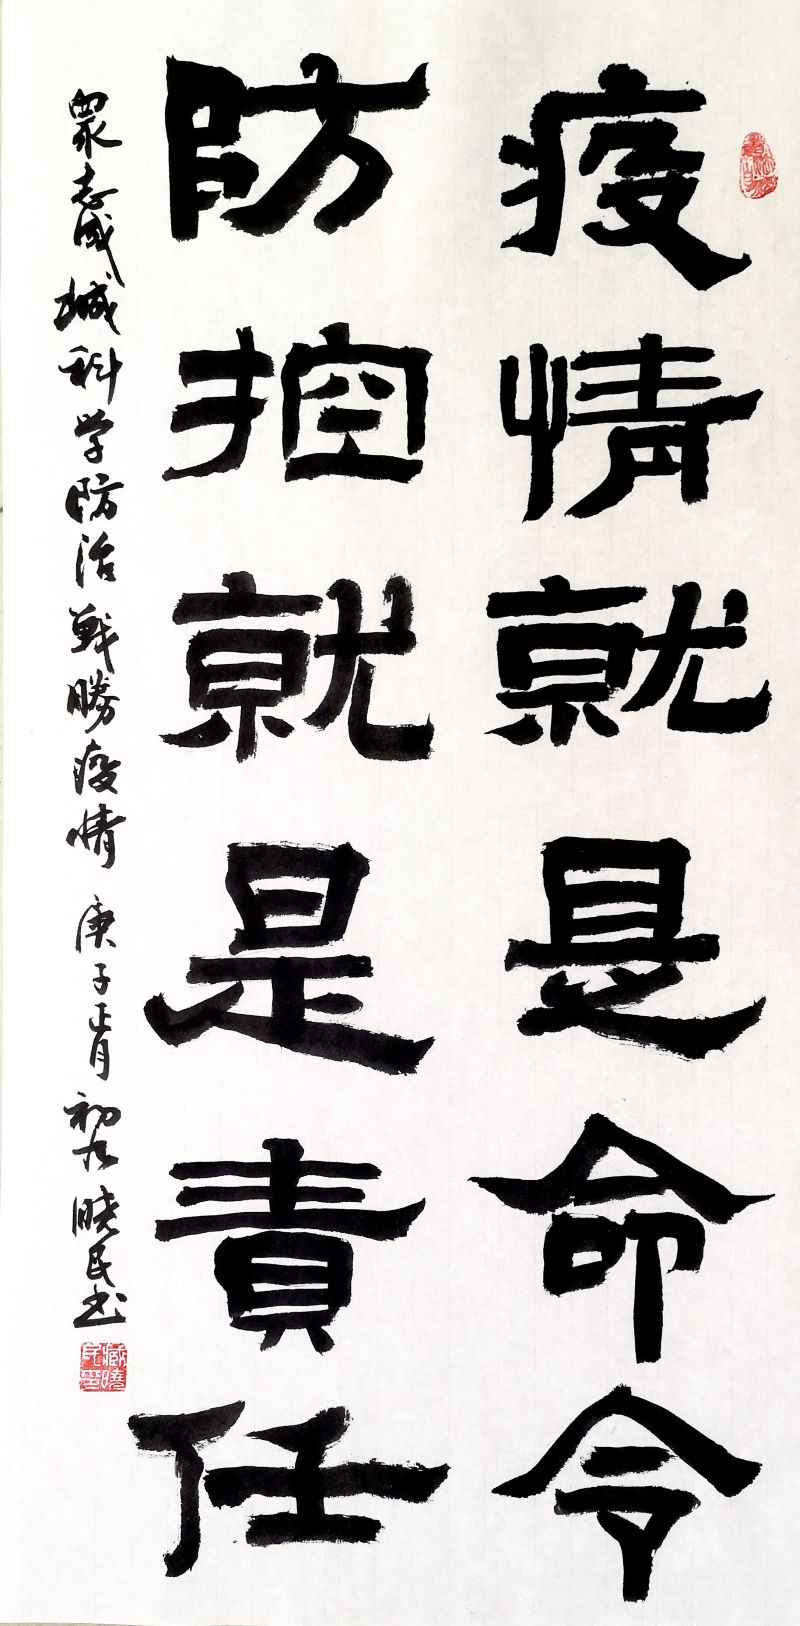 疫情就是命令
防控就是責任
眾志成城科学防治戰勝疫情 庚子正月初九 曉民书